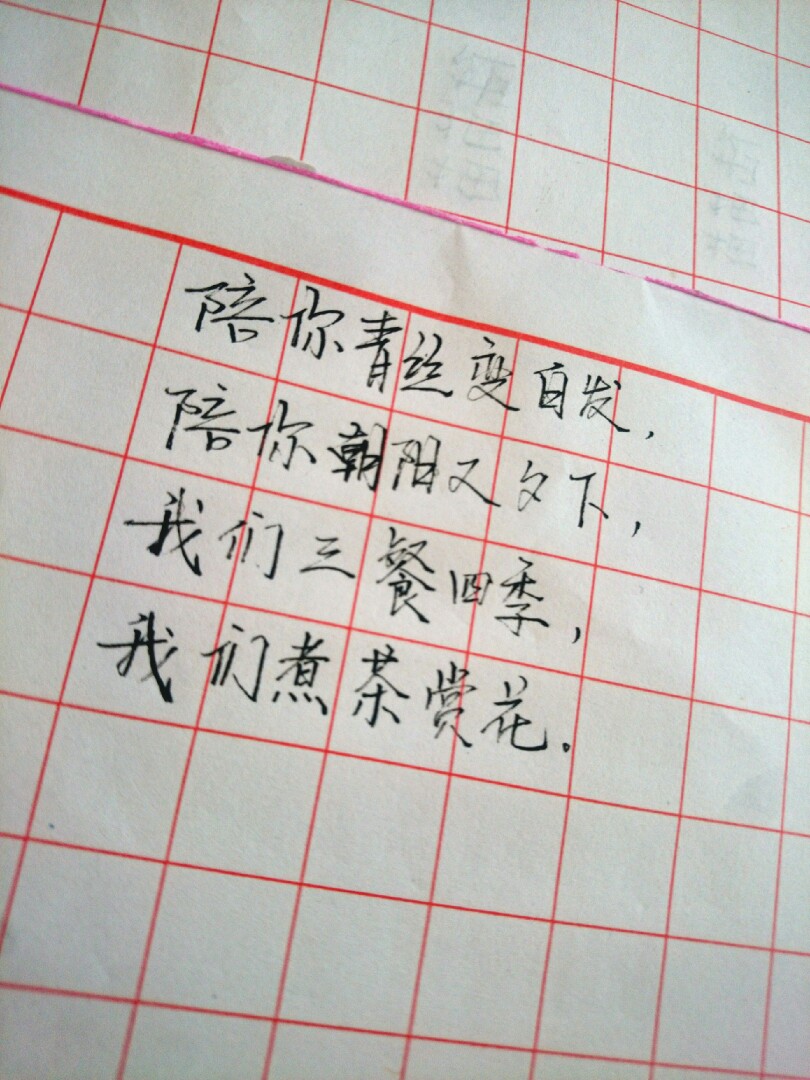 陪你青丝变白发，
陪你朝阳又夕下，
我们三餐四季，
我们煮茶赏花.